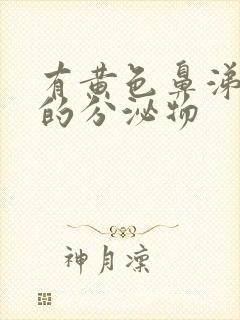 有黄色鼻涕
的分泌物
神月凛